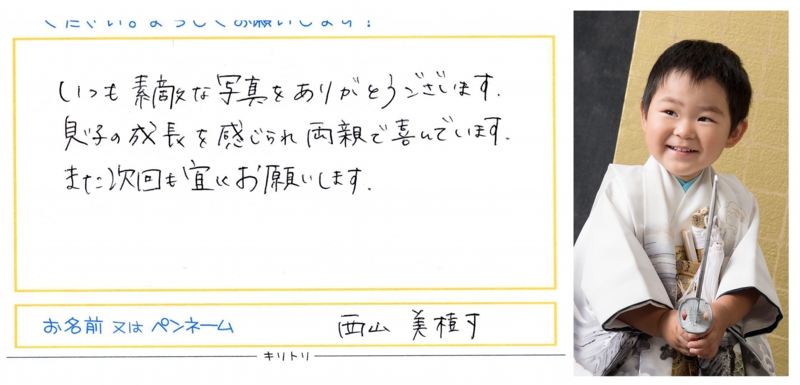 ください。よろしくお願いします!
いつも素敵な写真をありがとうございます.
息子の成長を感じられ両親で喜んでいます.
また次回も宜しくお願いします.
お名前 又は ペンネーム 西山 美
キリトリ